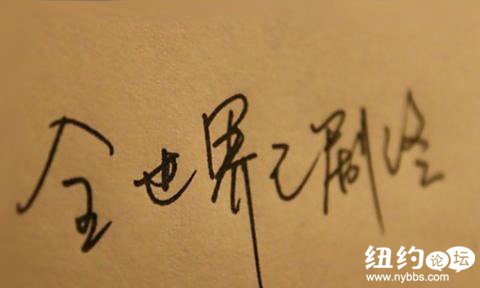 全世界已剧终
纽约论坛
www.nybbs.com